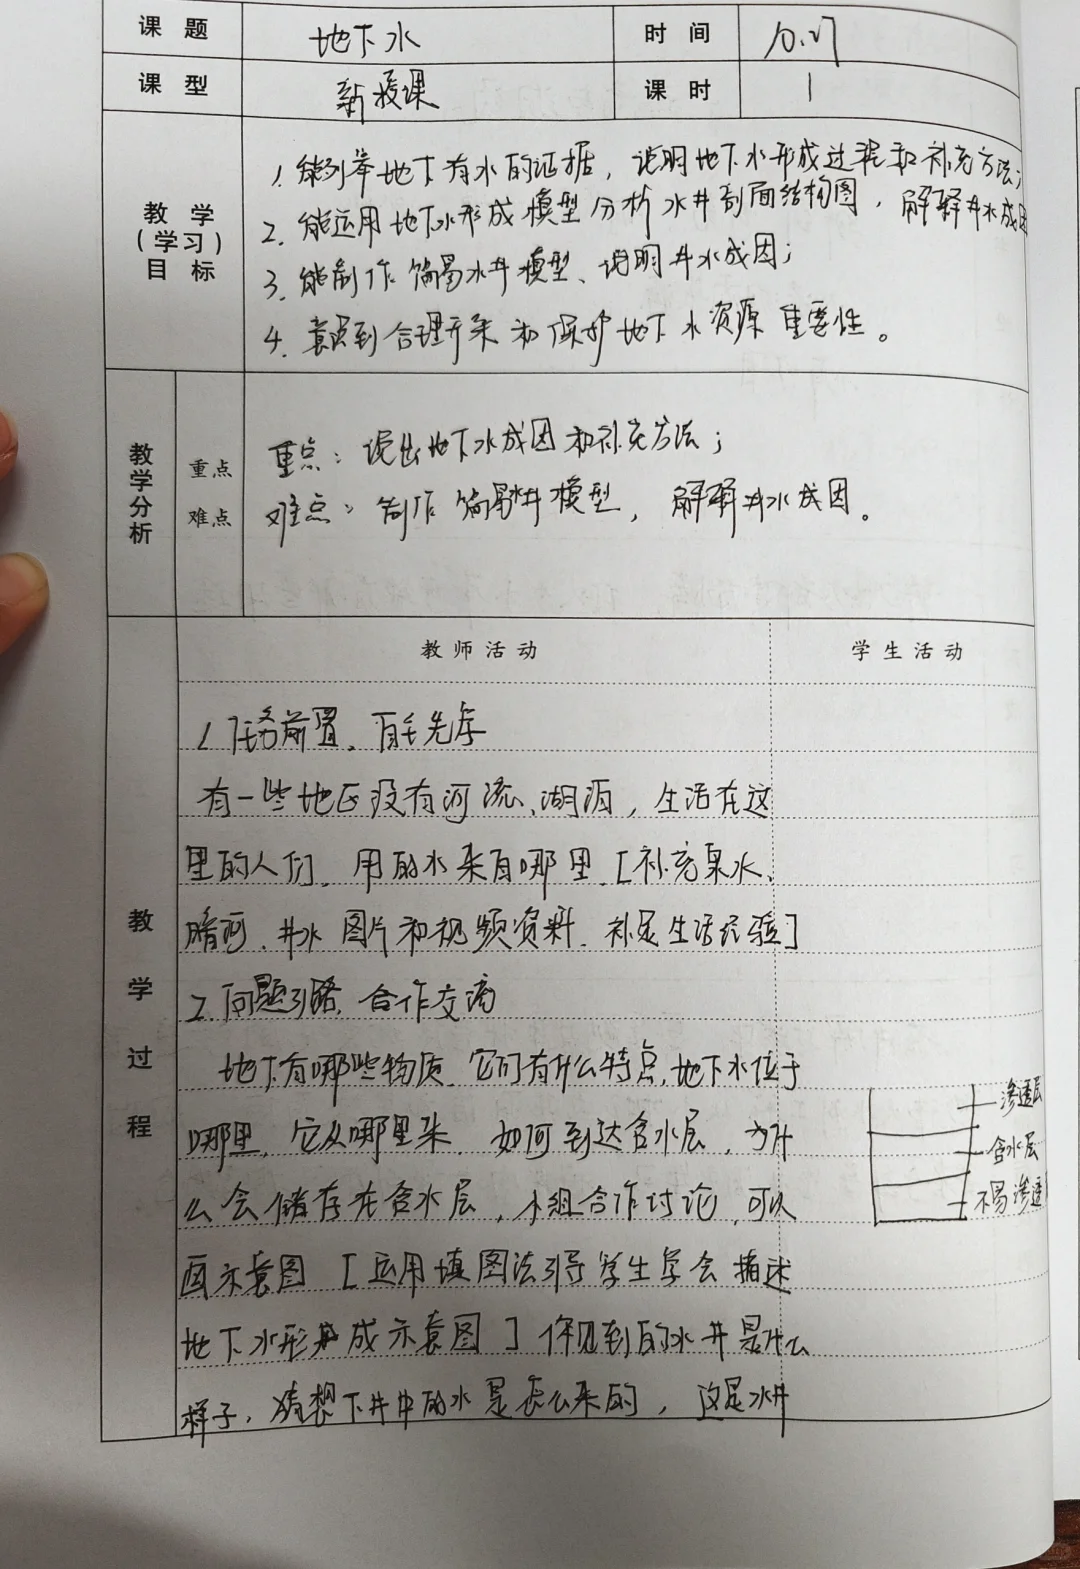 课题 地下水 时间 10.27
课型 新授课 课时 1
教学
(学习)
目标
1. 能列举地下有水的证据，说明地下水形成过程和补充方法；
2. 能运用地下水形成模型分析水井剖面结构图，解释井水成因
3. 能制作简易水井模型、说明井水成因；
4. 意识到合理开采和保护地下水资源重要性。
教学分析
重点
难点
重点：说出地下水成因和补充方法；
难点：制作简易水井模型，解释井水成因。
教师活动 学生活动
教学过程
1 任务前置、自主先学
有一些地区没有河流、湖泊，生活在这
里的人们、用的水来自哪里、[补充泉水、
暗河、井水 图片和视频资料、补足生活经验]
2. 问题引路、合作交流
地下有哪些物质、它们有什么特点，地下水位于
哪里、它从哪里来、如何到达含水层，为什
么会储存在含水层，小组合作讨论，可以
画示意图 [运用填图法引导学生学会描述
地下水形成示意图] 你见到的水井是什么
样子，猜想下井中的水是怎么来的，这是水井
渗透层
含水层
不易渗透